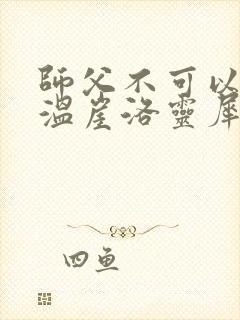 師父不可以
溫崖洛靈犀
四魚